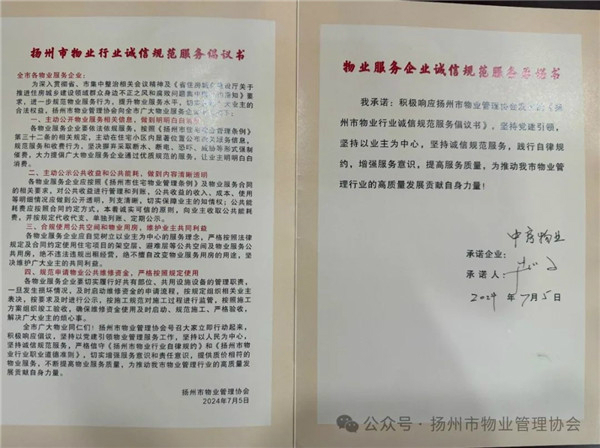 扬州市物业行业诚信规范服务倡议书
全市各物业服务企业：
为深入贯彻省、市集中整治相关会议精神及《省住房城乡建设厅关于
推进住房城乡建设领域群众身边不正之风和腐败问题集中
要求，进一步规范物业服务行为，提升物业服务水平，切实
合法权益，扬州市物业管理协会向全市广大物业服务企业
一、主动公开物业服务相关信息，做到明明白白
各物业服务企业要依法依规服务，按照《扬州市住宅物业管理条例》
第三十二条的相关规定，主动在住宅小区内显著位置公布
规范服务和收费行为，坚决摒弃采取断水、断电、恐吓、威胁等形式强制
催费，大力提倡广大物业服务企业通过优质规范的服务，让业主明明白白
消费。
二、主动公示公共收益和公共能耗，做到内容清晰透明
各物业服务企业应按照《扬州市住宅物业管理条例》及物业服务合同
的相关要求，对公共收益进行管理和列账，公共收益的收入、成本、使用
等明细情况应做到公开透明，列支清晰，切实保障业主的知情权；公共能
耗费应按照合同约定的方式，本着诚实可信的原则，向业主收取公共能耗
费，并按规定代收代支，单独列账，定期公示。
三、合规使用公共空间和物业用房，维护业主共同利益
各物业服务企业应自觉树立以业主为中心的服务理念，严格按照法律
规定及合同约定使用住宅项目的架空层、避难层等公共空间及物业服务公
共用房，绝不违法违规出租经营，绝不擅自改变物业服务用房的用途，坚
决维护广大业主的共同利益。
四、规范申请物业公共维修资金，严格按照规定使用
各物业服务企业要切实履行好共有部位、共用设施设备的管理职责，
一旦发生损坏情况，及时启动维修资金的申请流程，按规定组织相关业主
表决，按要求及时进行公示，按施工规范对施工过程进行监管，按照施工
方案组织竣工验收，确保维修资金使用及时启动、规范施工、严格验收，
解决广大业主的烦心事。
全市广大物业同仁们！扬州市物业管理协会号召大家立即行动起来，
积极响应倡议，坚持以党建引领物业管理服务工作，坚持以人民为中心，
坚持诚信服务，严格信守《扬州市物业行业自律规约》和《扬州市物业行
业行业职业道德准则》，切实增强服务意识和责任意识，提供质价相符的
物业服务，不断提高物业服务质量，为推动我市物业管理行业的高质量发
展贡献自身力量。
扬州市物业管理协会
2024年7月5日
物业服务企业诚信规范服务承诺书
我承诺：积极响应扬州市物业管理协会发布的《扬
州市物业行业诚信规范服务倡议书》，坚持党建引领，
坚持以业主为中心，坚持诚信规范服务，践行自律规
约，增强服务意识，提高服务质量，为推动我市物业管
理行业的高质量发展贡献自身力量！
承诺企业：中房物业
承诺人：
2024年7月5日
公众号·扬州市物业管理协会